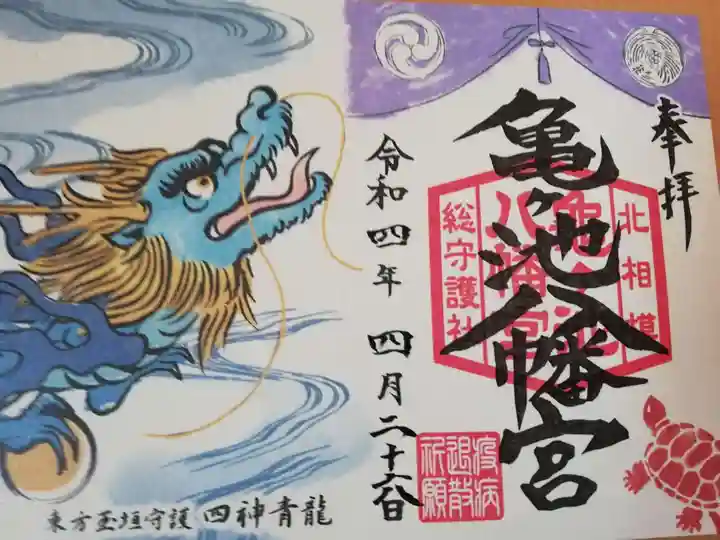 奉拝
亀ヶ池八幡宮
北相模
亀ヶ池
八幡宮
総守護社
疫病
退散
祈願
令和四年 四月二十六日
東方玉垣守護 四神青龍